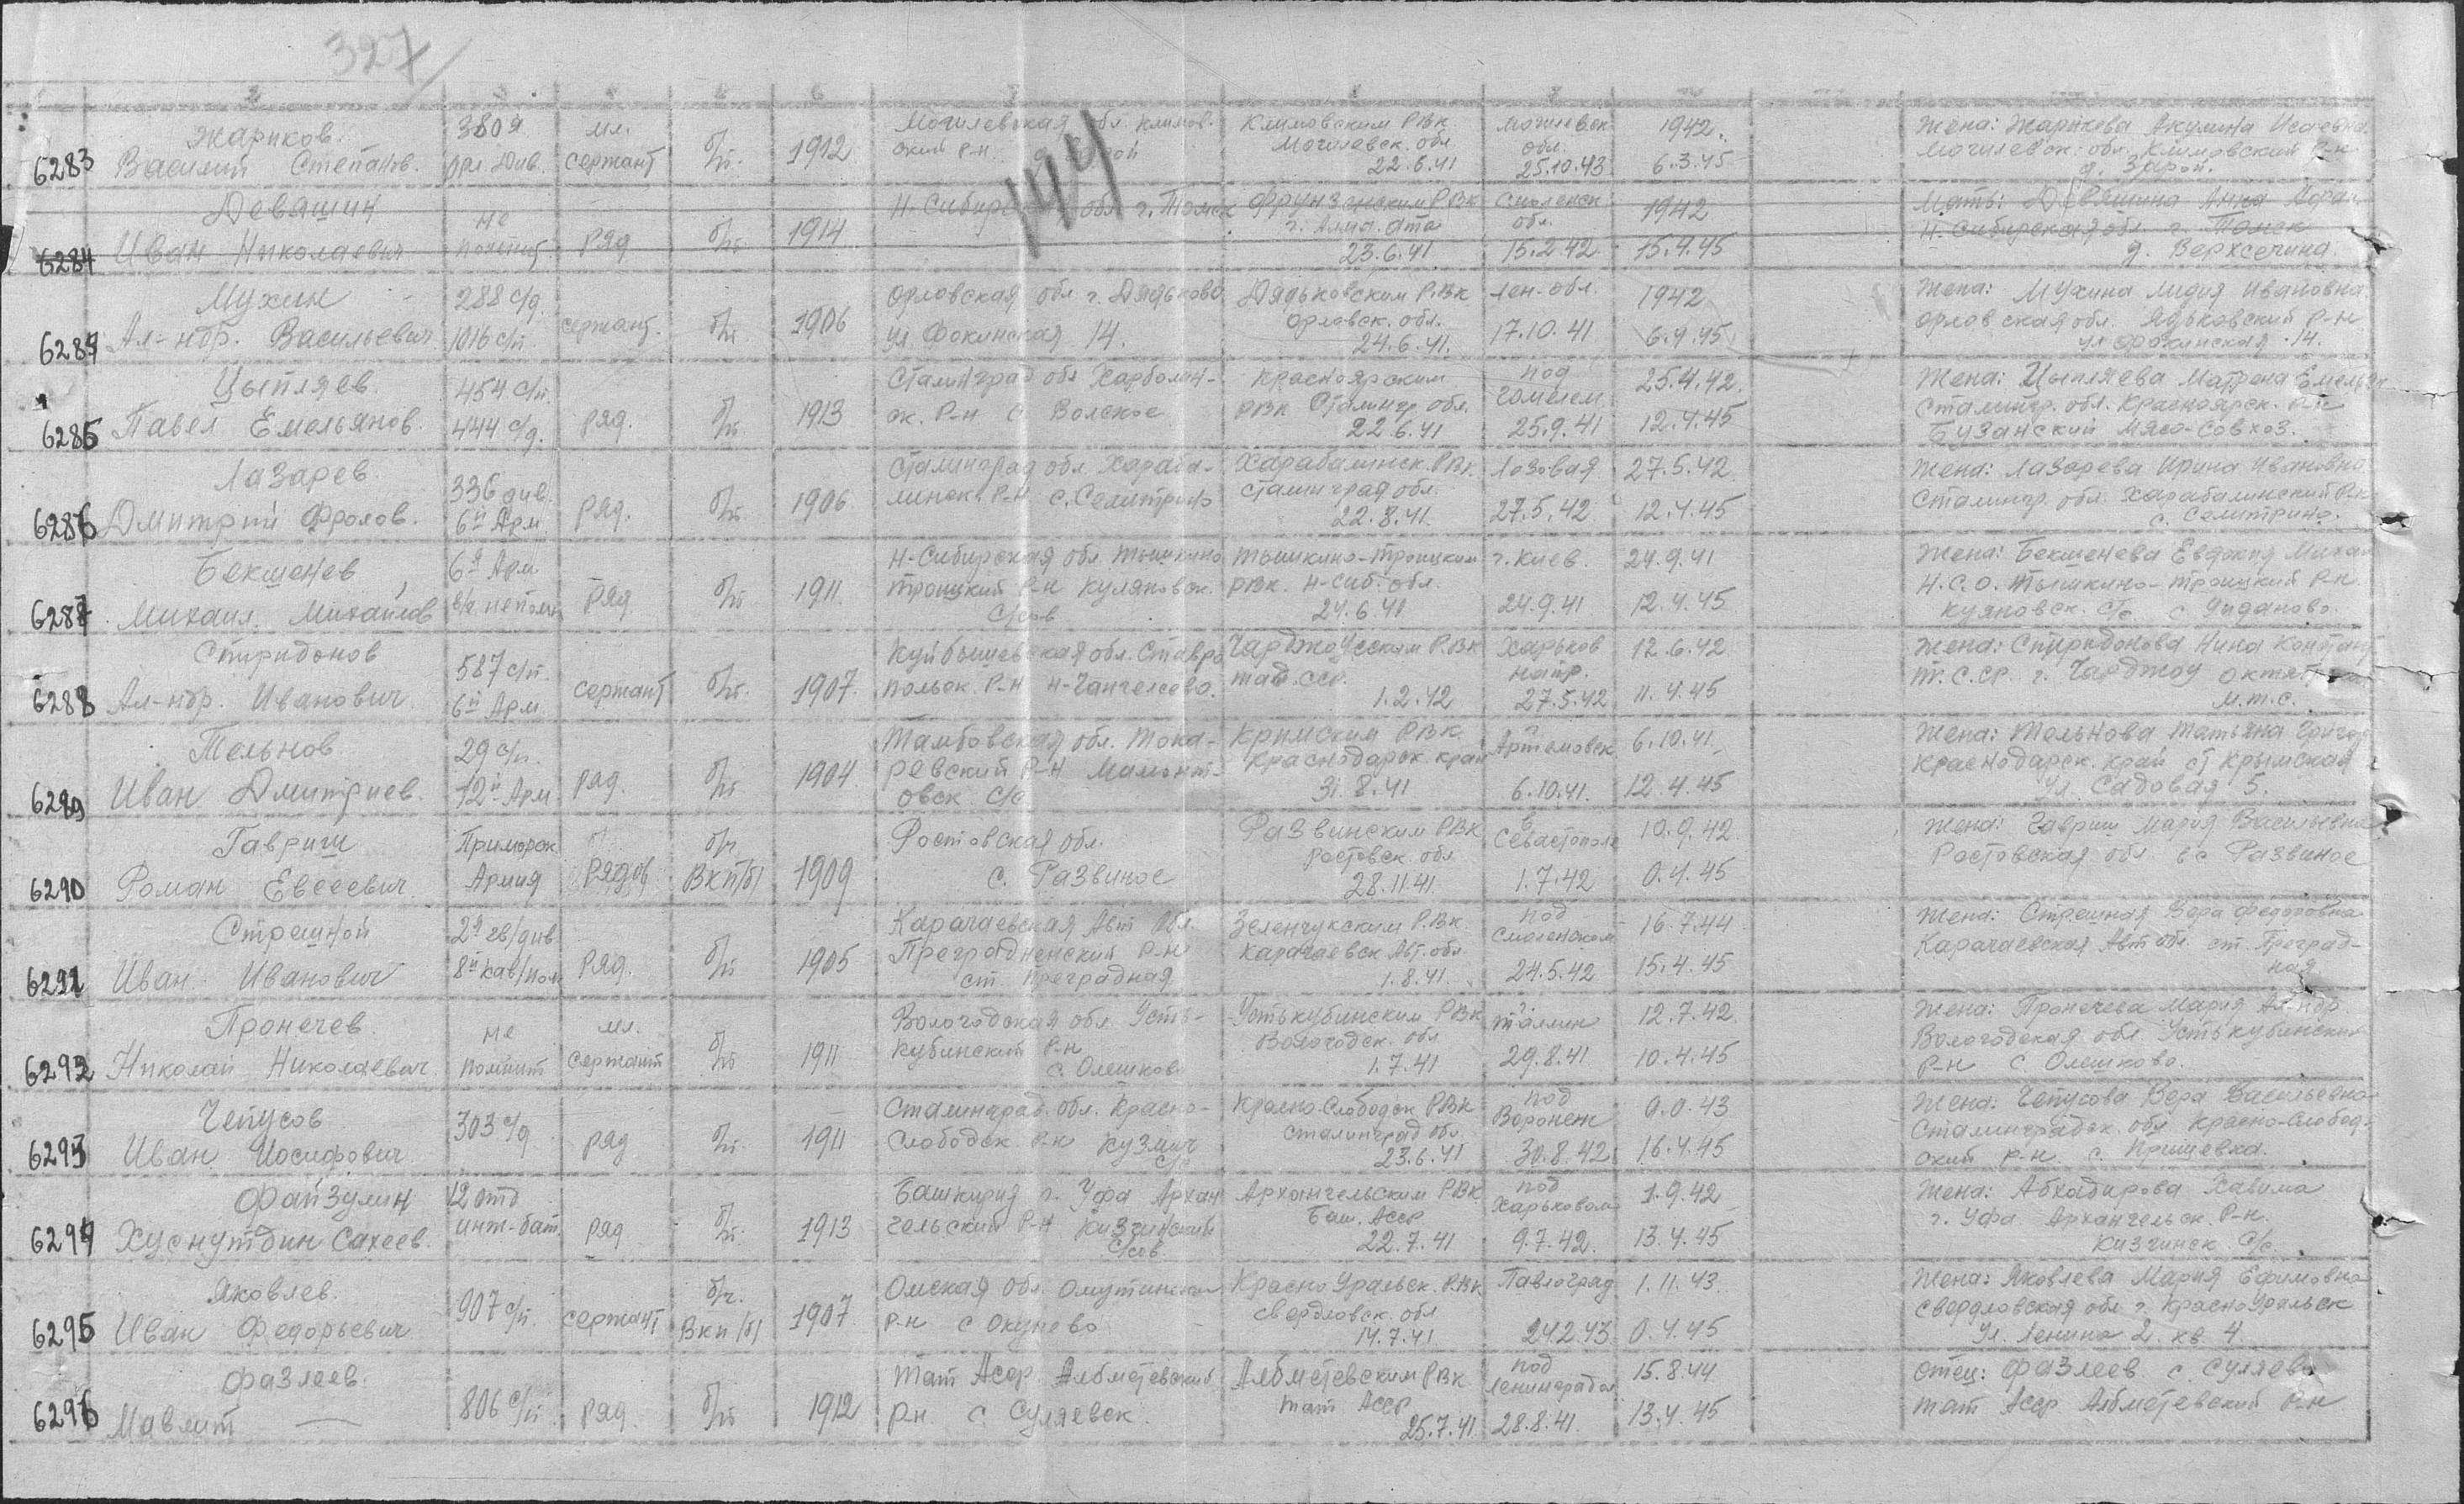 327
144
6283 Жариков Василий Степанов. 380 я арт. див. мл. сержант б/п. 1912 Могилевская обл. Климов. ский р-н. Климовским РВК Могилевск. обл 22.6.41 Могилевск обл. 25.10.43 1942. 6.3.45 Жена: Жарикова Акулина Исаевна Могилевск. обл. Климовский р-н д. Зарой.
6284 Девяшин Иван Николаевич не помнит ряд б/п 1914 Н-Сибирская обл. г. Томск Фрунзенским РВК г. Алма-Ата 23.6.41 Смоленск. обл. 15.2.42 1942 15.4.45 Мать: Девяшина Анна Н-Сибирская обл. г. Томск д. Верхсечина
6284 Мухин Ал-ндр. Васильевич 288 с/д. 1016 с/п. сержант. б/п 1906 Орловская обл г. Дядьково ул Фокинская 14. Дядьковским РВК Орловск. обл. 24.6.41. Лен-обл. 17.10.41 1942 6.9.45 Жена: Мухина Лидия Ивановна Орловская обл. Ядьковский р-н ул Фокинская 14.
6285 Цыпляев. Павел Емельянов. 454 с/п. 444 с/д. ряд. б/п 1913 Сталинград обл Харболин- ск. Р-н с. Волское Красноярским РВК Сталингр. обл. 22.6.41 под Гомелем 25.9.41 25.4.42. 12.4.45 Жена: Цыпляева Матрена Емельян Сталингр. обл. Красноярск. р-н Бузанский Мясо-Совхоз.
6286 Лазарев Дмитрий Фролов. 336 див. 6й Арм ряд. б/п 1906 Сталинград обл. Хараба- линск. Р-н с. Селитрино Харабалинск. РВК Сталинград обл. 22.8.41. Лозовая 27.5.42 27.5.42 12.4.45 Жена: Лазарева Ирина Ивановна Сталингр. обл. Харабалинский Р-н с. Селитрино.
6287 Бекшенев Михаил Михайлов 6я Арм в/ч не помн ряд б/п 1911 Н-Сибирская обл. Тышкино Троицкий Р-н Куляновск. с/сов Тышкино-Троицким РВК. Н-Сиб. обл. 24.6.41 г. Киев. 24.9.41 24.9.41 12.4.45 Жена: Бекшенева Евдокия Михай Н.С.О. Тышкино-Троицкий р-н. Куяновск. с/с с Жиданово
6288 Спиридонов Ал-ндр. Иванович. 587 с/п. 6й Арм. сержант б/п. 1907. Куйбышевская обл. Ставро польск. Р-н Н-Сангелеево. Чарджоусским РВК Тад. сср. 1.2.42 Харьков напр. 27.5.42 12.6.42 11.4.45 Жена: Спиридонова Нина Констант Т.С.Ср. г. Чарджоу М.Т.С.
6289 Тельнов Иван Дмитриев. 29 с/п. 12й Арм ряд. б/п 1904 Тамбовская обл. Тока- ревский Р-н Мамонт- овск. с/с Крымским РВК Краснодарск край 31.8.41 г. Артемовск 6.10.41. 6.10.41 12.4.45 Жена: Тельнова Татьяна Григор Краснодарск. край ст Крымская Ул. Садовая 5.
6290 Гавриш Роман Евсеевич. Приморск Армия рядов б/ч ВКП/б/ 1909 Ростовская обл. с. Развиное Развинским РВК Ростовск. обл 28.11.41 в Севастополе 1.7.42 10.9.42. 0.4.45 Жена: Гавриш Мария Васильевна Ростовская обл. с. Развиное
6291 Стрешной Иван Иванович 2я гв/див 8й кав/пол ряд. б/п 1905 Карачаевская Авт Обл. Преградненский р-н ст. Преградная Зеленчукским Р.ВК Карачаевск Авт. обл 1.8.41. под Смоленском 24.5.42 16.7.44 15.4.45 Жена: Стрешная Вера Федоровна Карачаевская Авт обл. ст. Преград- ная
6292 Пронечев. Николай Николаевич. не помнит мл. сержант б/п 1911 Вологодская обл Усть- Кубинский р-н с. Олешково Устькубинским РВК Вологодск. обл 1.7.41 г. Таллин 29.8.41 12.7.42. 10.4.45 Жена: Пронечева Мария Ал-ндр. Вологодская обл Устькубинский р-н с Олешково.
6293 Чепусов Иван Иосифович 303 с/д ряд б/п 1911 Сталинград. обл. Красно- Слободск р-н Кузмич Красно-Слободск РВК Сталинград обл 23.6.41 под Воронеж 30.8.42 0.0.43 16.4.45 Жена: Чепусова Вера Васильевна Сталинградск. обл Красно-Слобод- ский р-н. с. Пришевка.
6294 Файзулин Хуснутдин Сахеев. 12 отд инж-бат ряд б/п. 1913 Башкирия г. Уфа Архан гельский Р-н Кизгинский с/сов Архангельским РВК Баш. Асср 22.7.41 под Харьковом 9.7.42. 1.9.42 13.4.45 Жена: Абхадирова Хавима г. Уфа Архангельск. Р-н. Кизгинск с/с
6295 Яковлев. Иван Федорьевич 907 с/п. сержант б/ч. ВКП/б/ 1907 Омская обл Омутинский р-н с Окунево КрасноУральск. РВК Свердловск. обл 14.7.41 Павлоград 24.2.43 1.11.43. 0.4.45 Жена: Яковлева Мария Ефимовна Свердловская обл г. КрасноУральск Ул. Ленина 2. кв. 4.
6296 Фазлеев. Мавлит — 806 с/п ряд. б/п 1912 Тат Асср. Албметевский р-н с Суляевск. Албметевским РВК Тат Асср 25.7.41 под Ленинградом 28.8.41. 15.8.44 13.4.45 Отец: Фазлеев с. Суляево Тат Асср Албметевский р-н